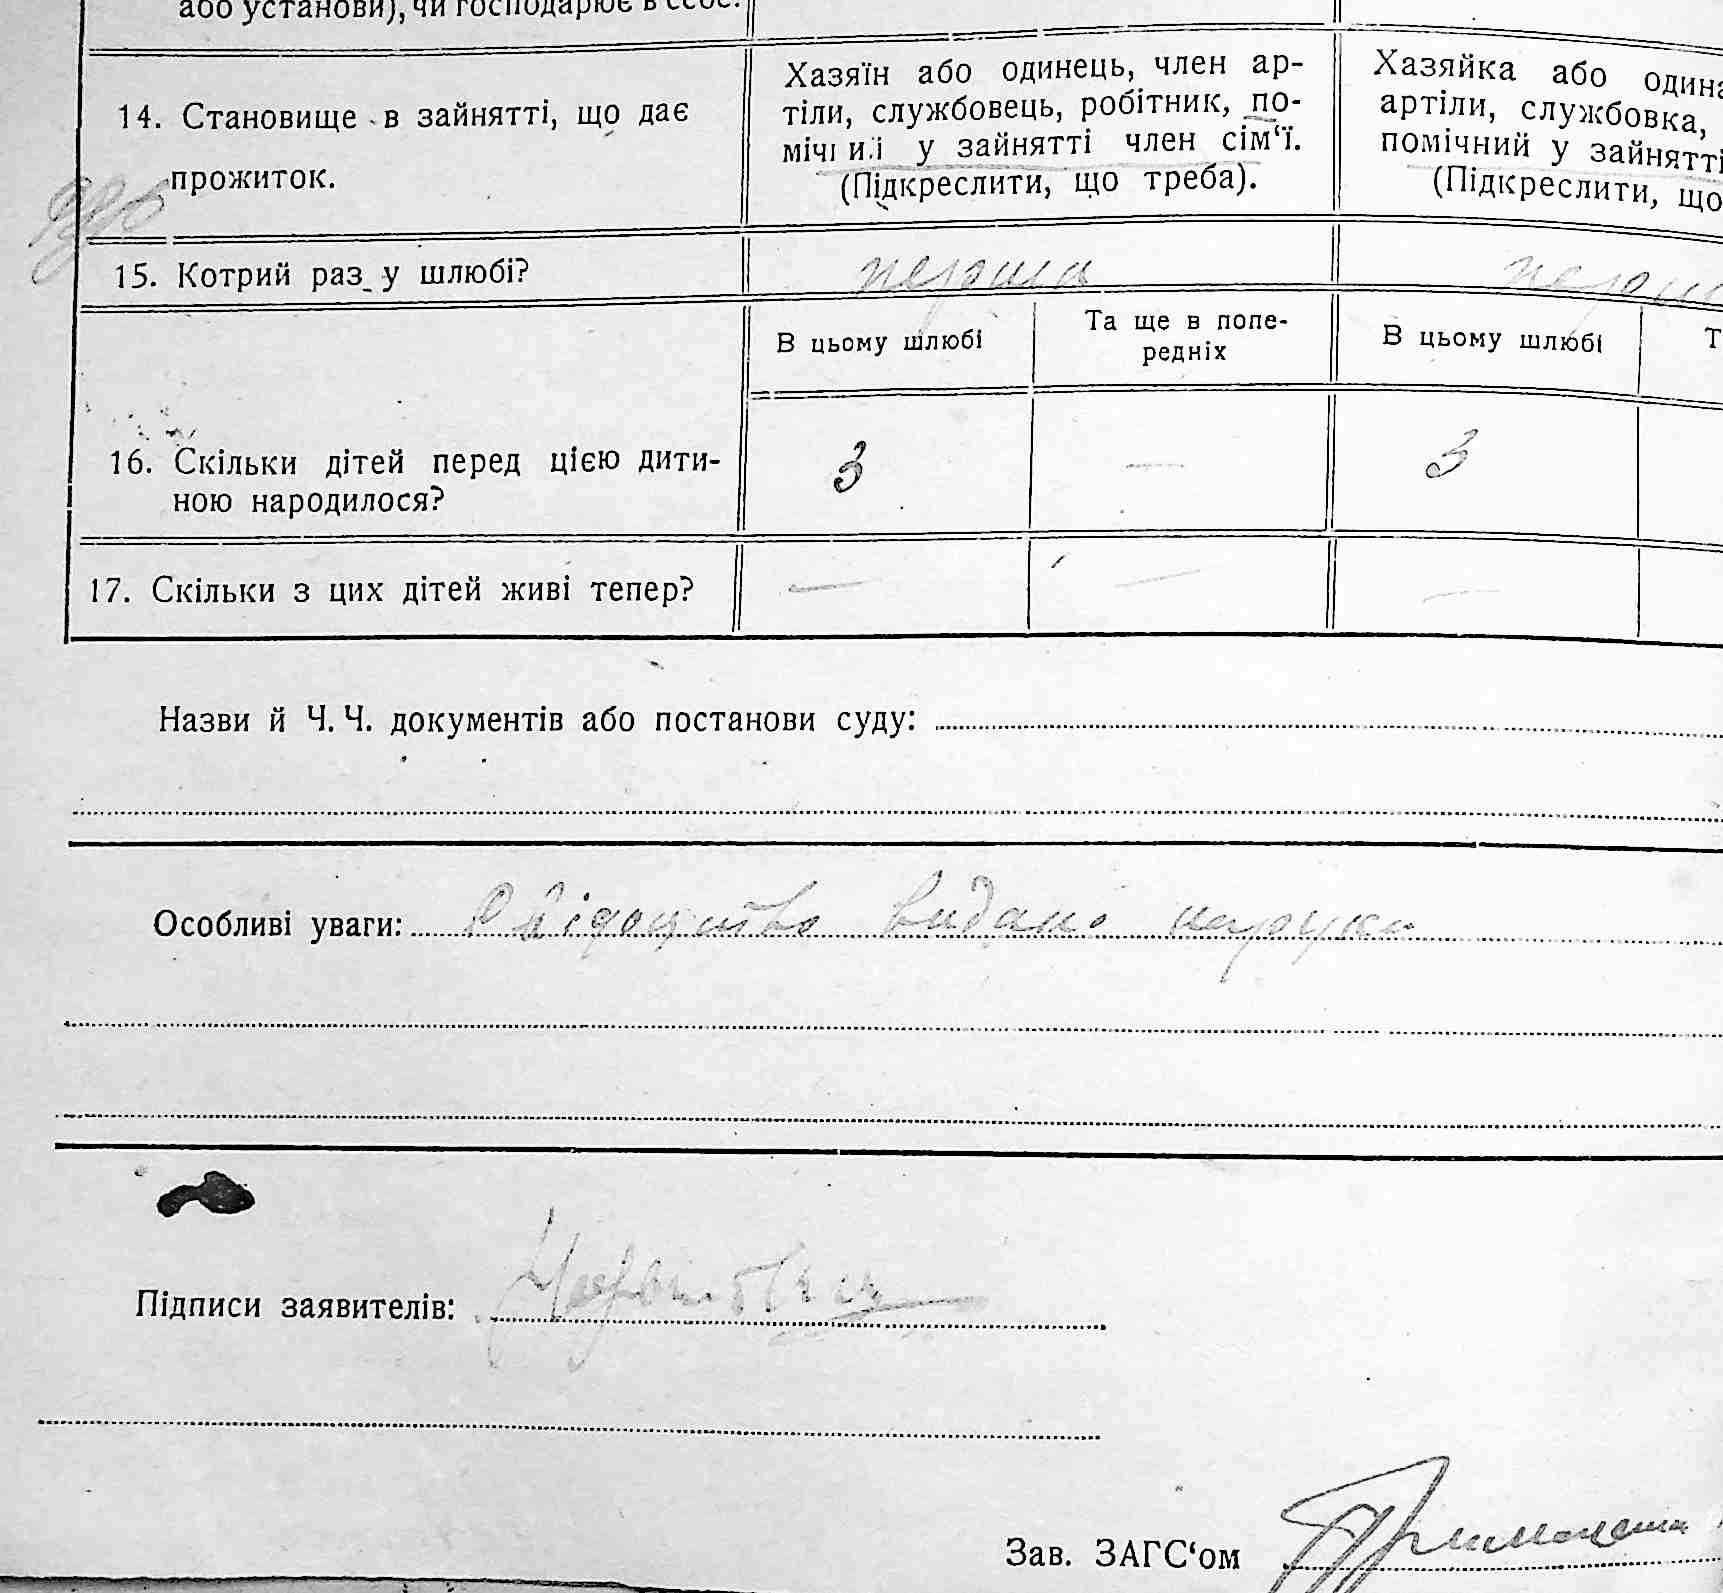 або установи), чи господарює в себе.
14. Становище в зайнятті, що дає
прожиток.
Хазяїн або одинець, член ар-
тіли, службовець, робітник, по-
мічний у зайнятті член сім‘ї.
(Підкреслити, що треба).
Хазяйка або
артіли, службовка,
помічний у зайнятті
(Підкреслити, що
15. Котрий раз у шлюбі?
перша
В цьому шлюбі
Та ще в попе-
редніх
В цьому шлюбі
Т
16. Скільки дітей перед цією дити-
ною народилося?
3
—
3
17. Скільки з цих дітей живі тепер?
—
—
—
Назви й Ч. Ч. документів або постанови суду:
Особливі уваги: Свідоцтво видано наруки
Підписи заявителів:
Зав. ЗАГС‘ом